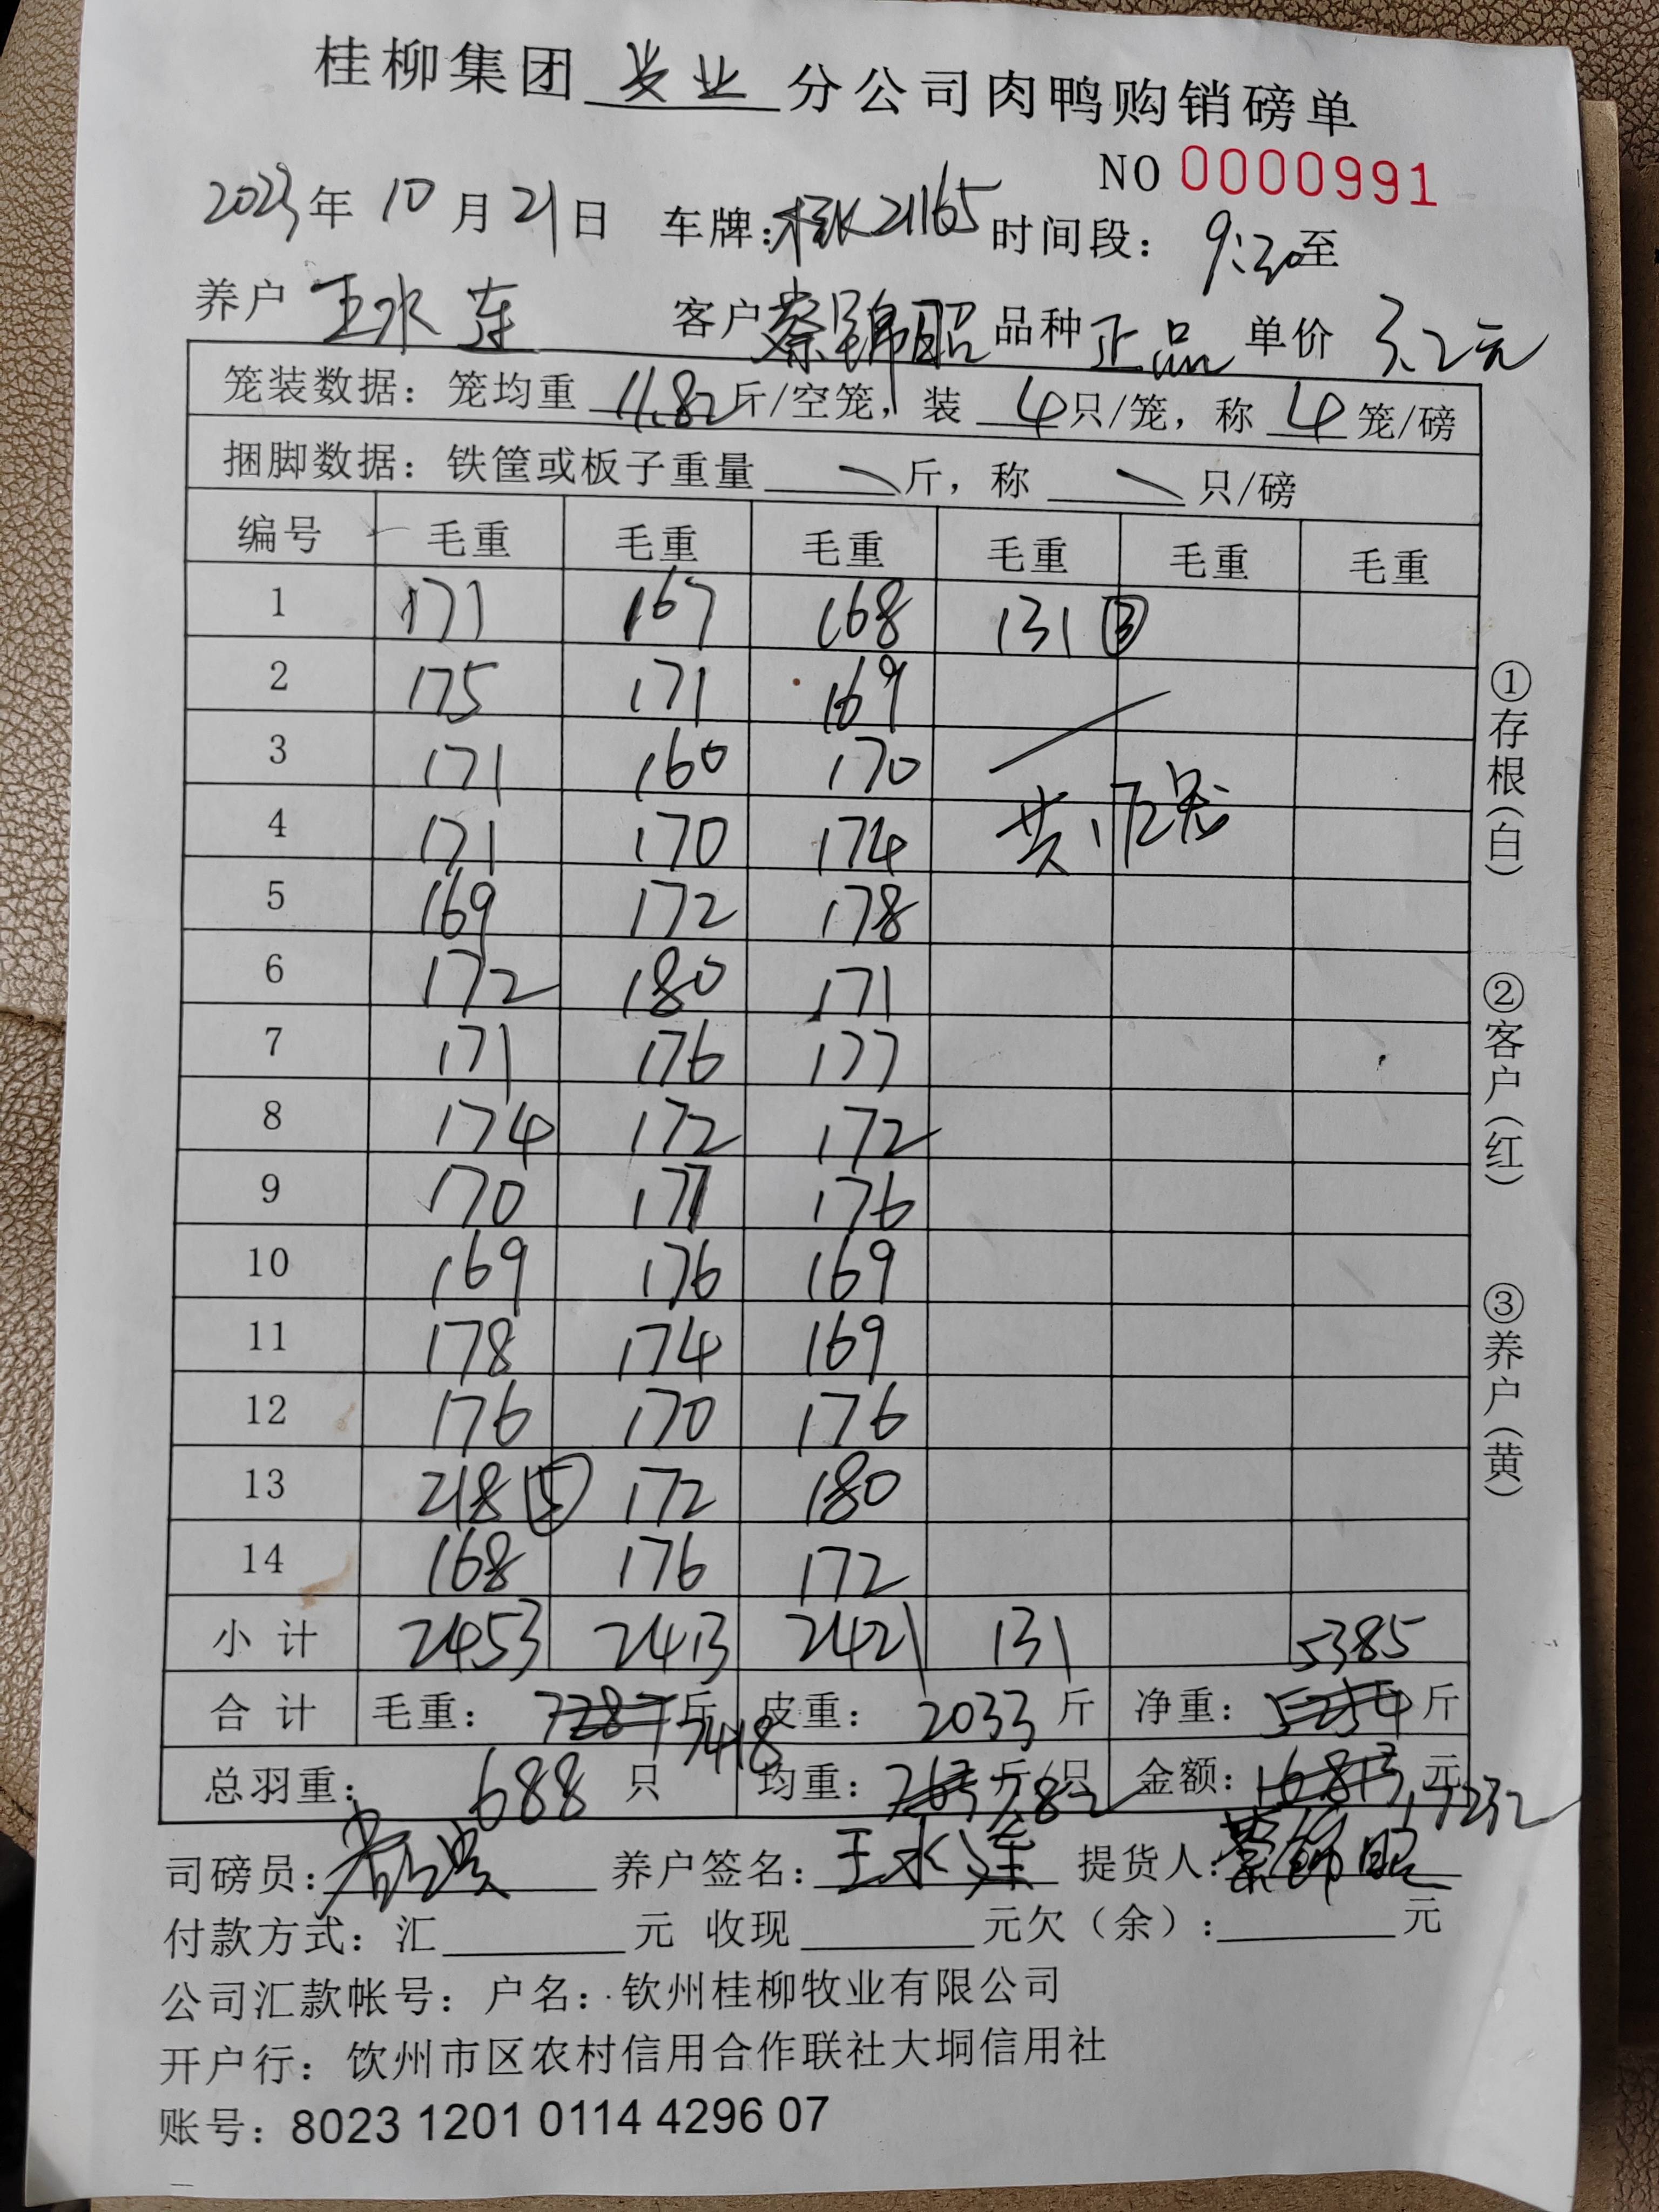 桂柳集团 牧业 分公司肉鸭购销磅单
NO 0000991
2023年 10 月 21 日 车牌: 21165 时间段: 9:20至
养户 王水连 客户 蔡锦昭 品种 正品 单价 3.2元
笼装数据: 笼均重 11.82 斤/空笼, 装 4 只/笼, 称 4 笼/磅
捆脚数据: 铁筐或板子重量 斤, 称 只/磅
编号 毛重 毛重 毛重 毛重 毛重 毛重
1 171 167 168 131 ③
2 175 171 169
3 171 160 170
4 171 170 174 共172笼
5 169 172 178
6 172 180 171
7 171 176 177
8 174 172 172
9 170 177 176
10 169 176 169
11 178 174 169
12 176 170 176
13 218 ⑤ 172 180
14 168 176 172
小计 2453 2413 2421 131 5385
合计 毛重: 7287 斤 7418 皮重: 2033 斤 净重: 5254 斤
总羽重: 688 只 均重: 7.63 斤/只 7.82 金额: 16813 元 17232
司磅员: 养户签名: 王水连 提货人: 蔡锦昭
付款方式: 汇 元 收现 元欠(余): 元
公司汇款帐号: 户名: 钦州桂柳牧业有限公司
开户行: 钦州市区农村信用合作联社大垌信用社
账号: 8023 1201 0114 4296 07
①存根(白) ②客户(红) ③养户(黄)